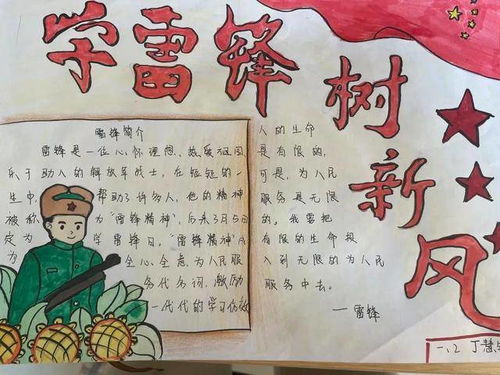 学雷锋树新风
雷锋简介
雷锋是一位心怀理想、热爱祖国
乐于助人的解放军战士,在短短的一
生中,帮助了许多人,他的精神
被称为"雷锋精神",后来3月5日
定为学雷锋日。"雷锋精神"
为全心全意为人民服
务代名词,激励
一代代的学习
人的生命
是有限的,
可是,为人民
服务是无限
的,我要把
有限的生命投
入到无限的为人民
服务中去。
一雷锋
一、2 丁慧